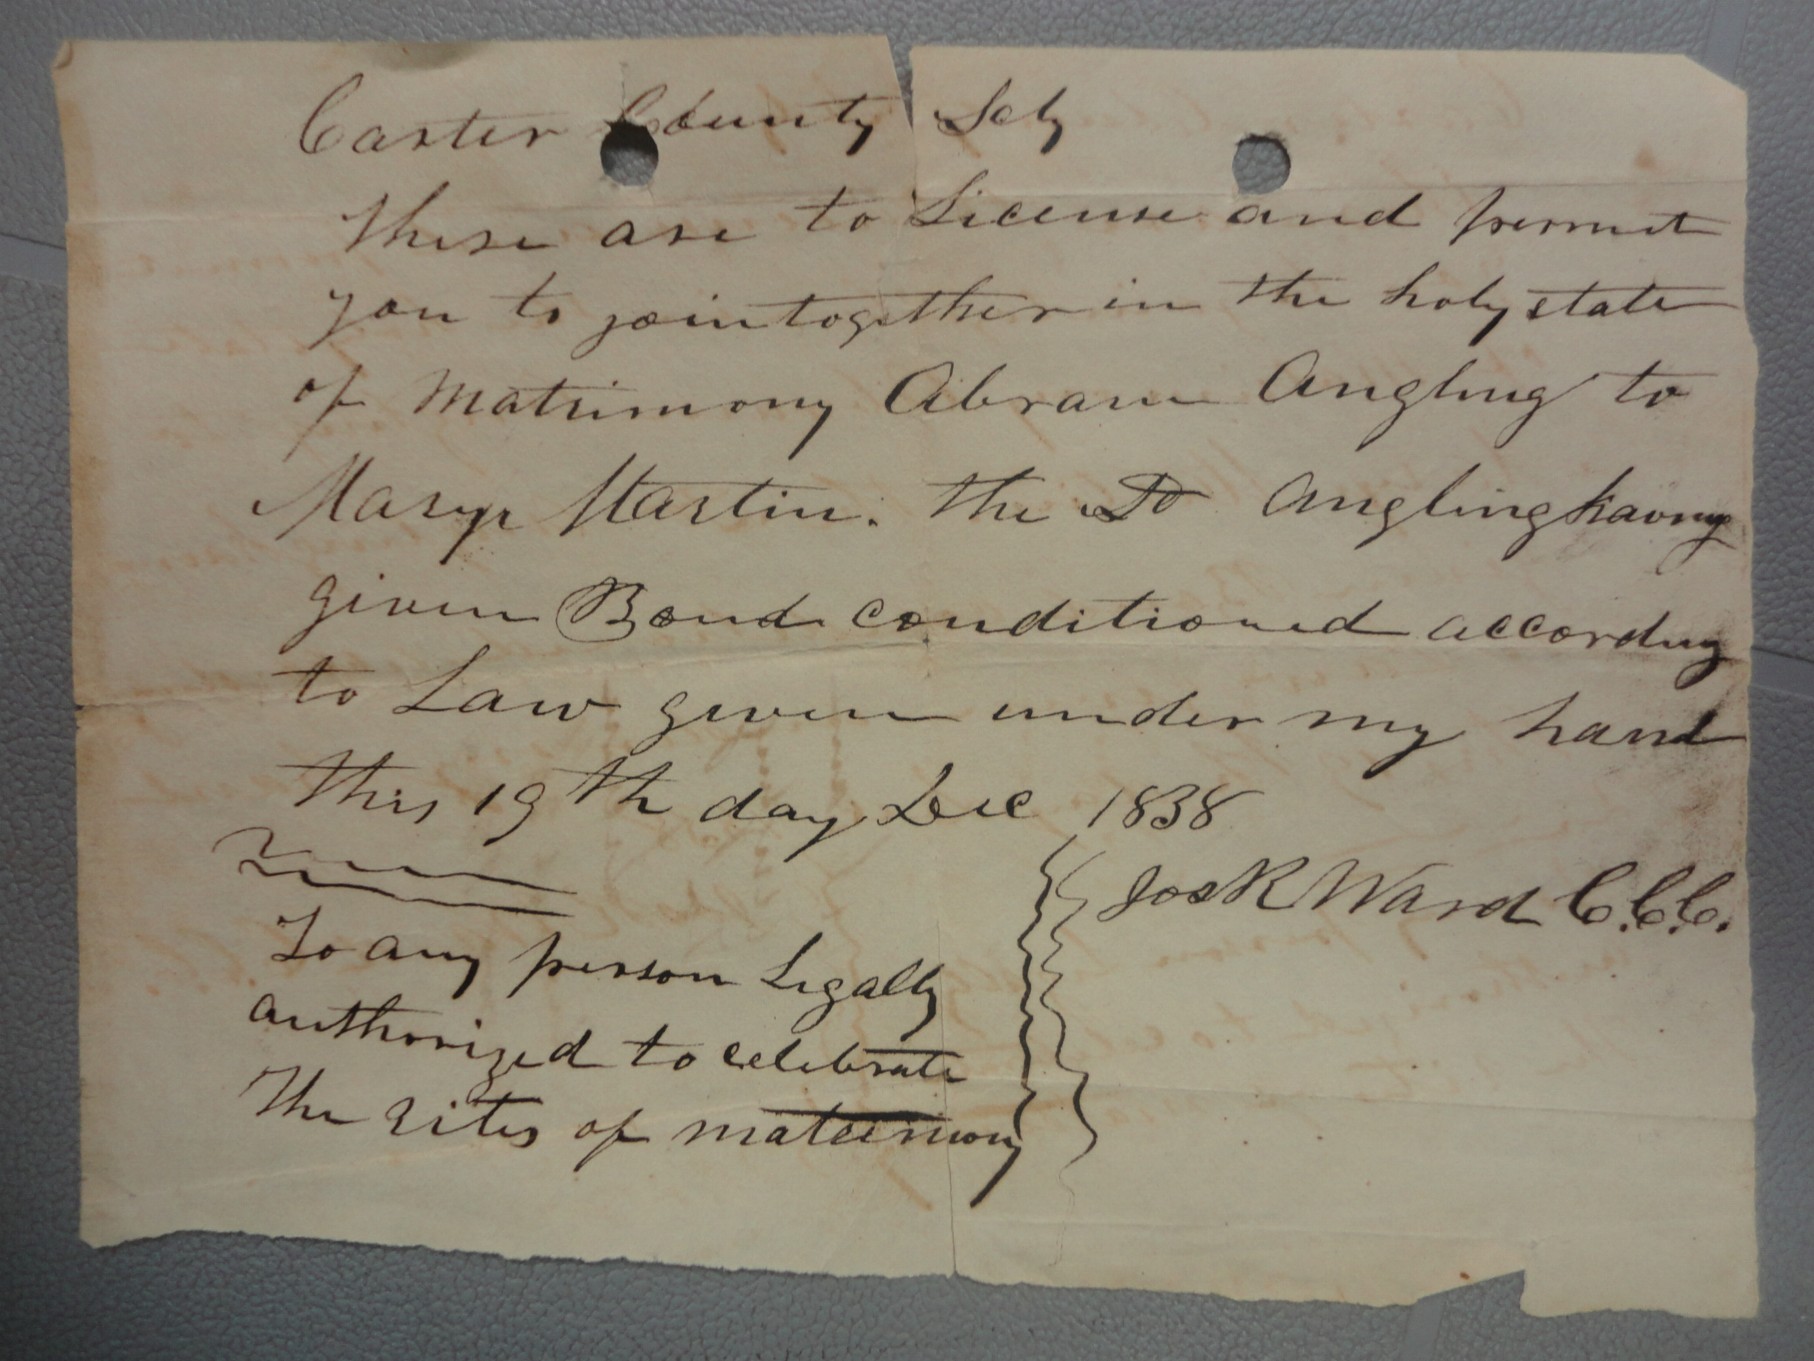 Carter County Sct
These are to License and permit
you to join together in the holy state
of Matrimony Abram Angling to
Mary Martin. the Sd Angling having
given Bond conditioned according
to Law given under my hand
this 19th day Dec 1838
Jos R Ward C.C.C.
To any person Legally
authorized to celebrate
The rites of matrimony